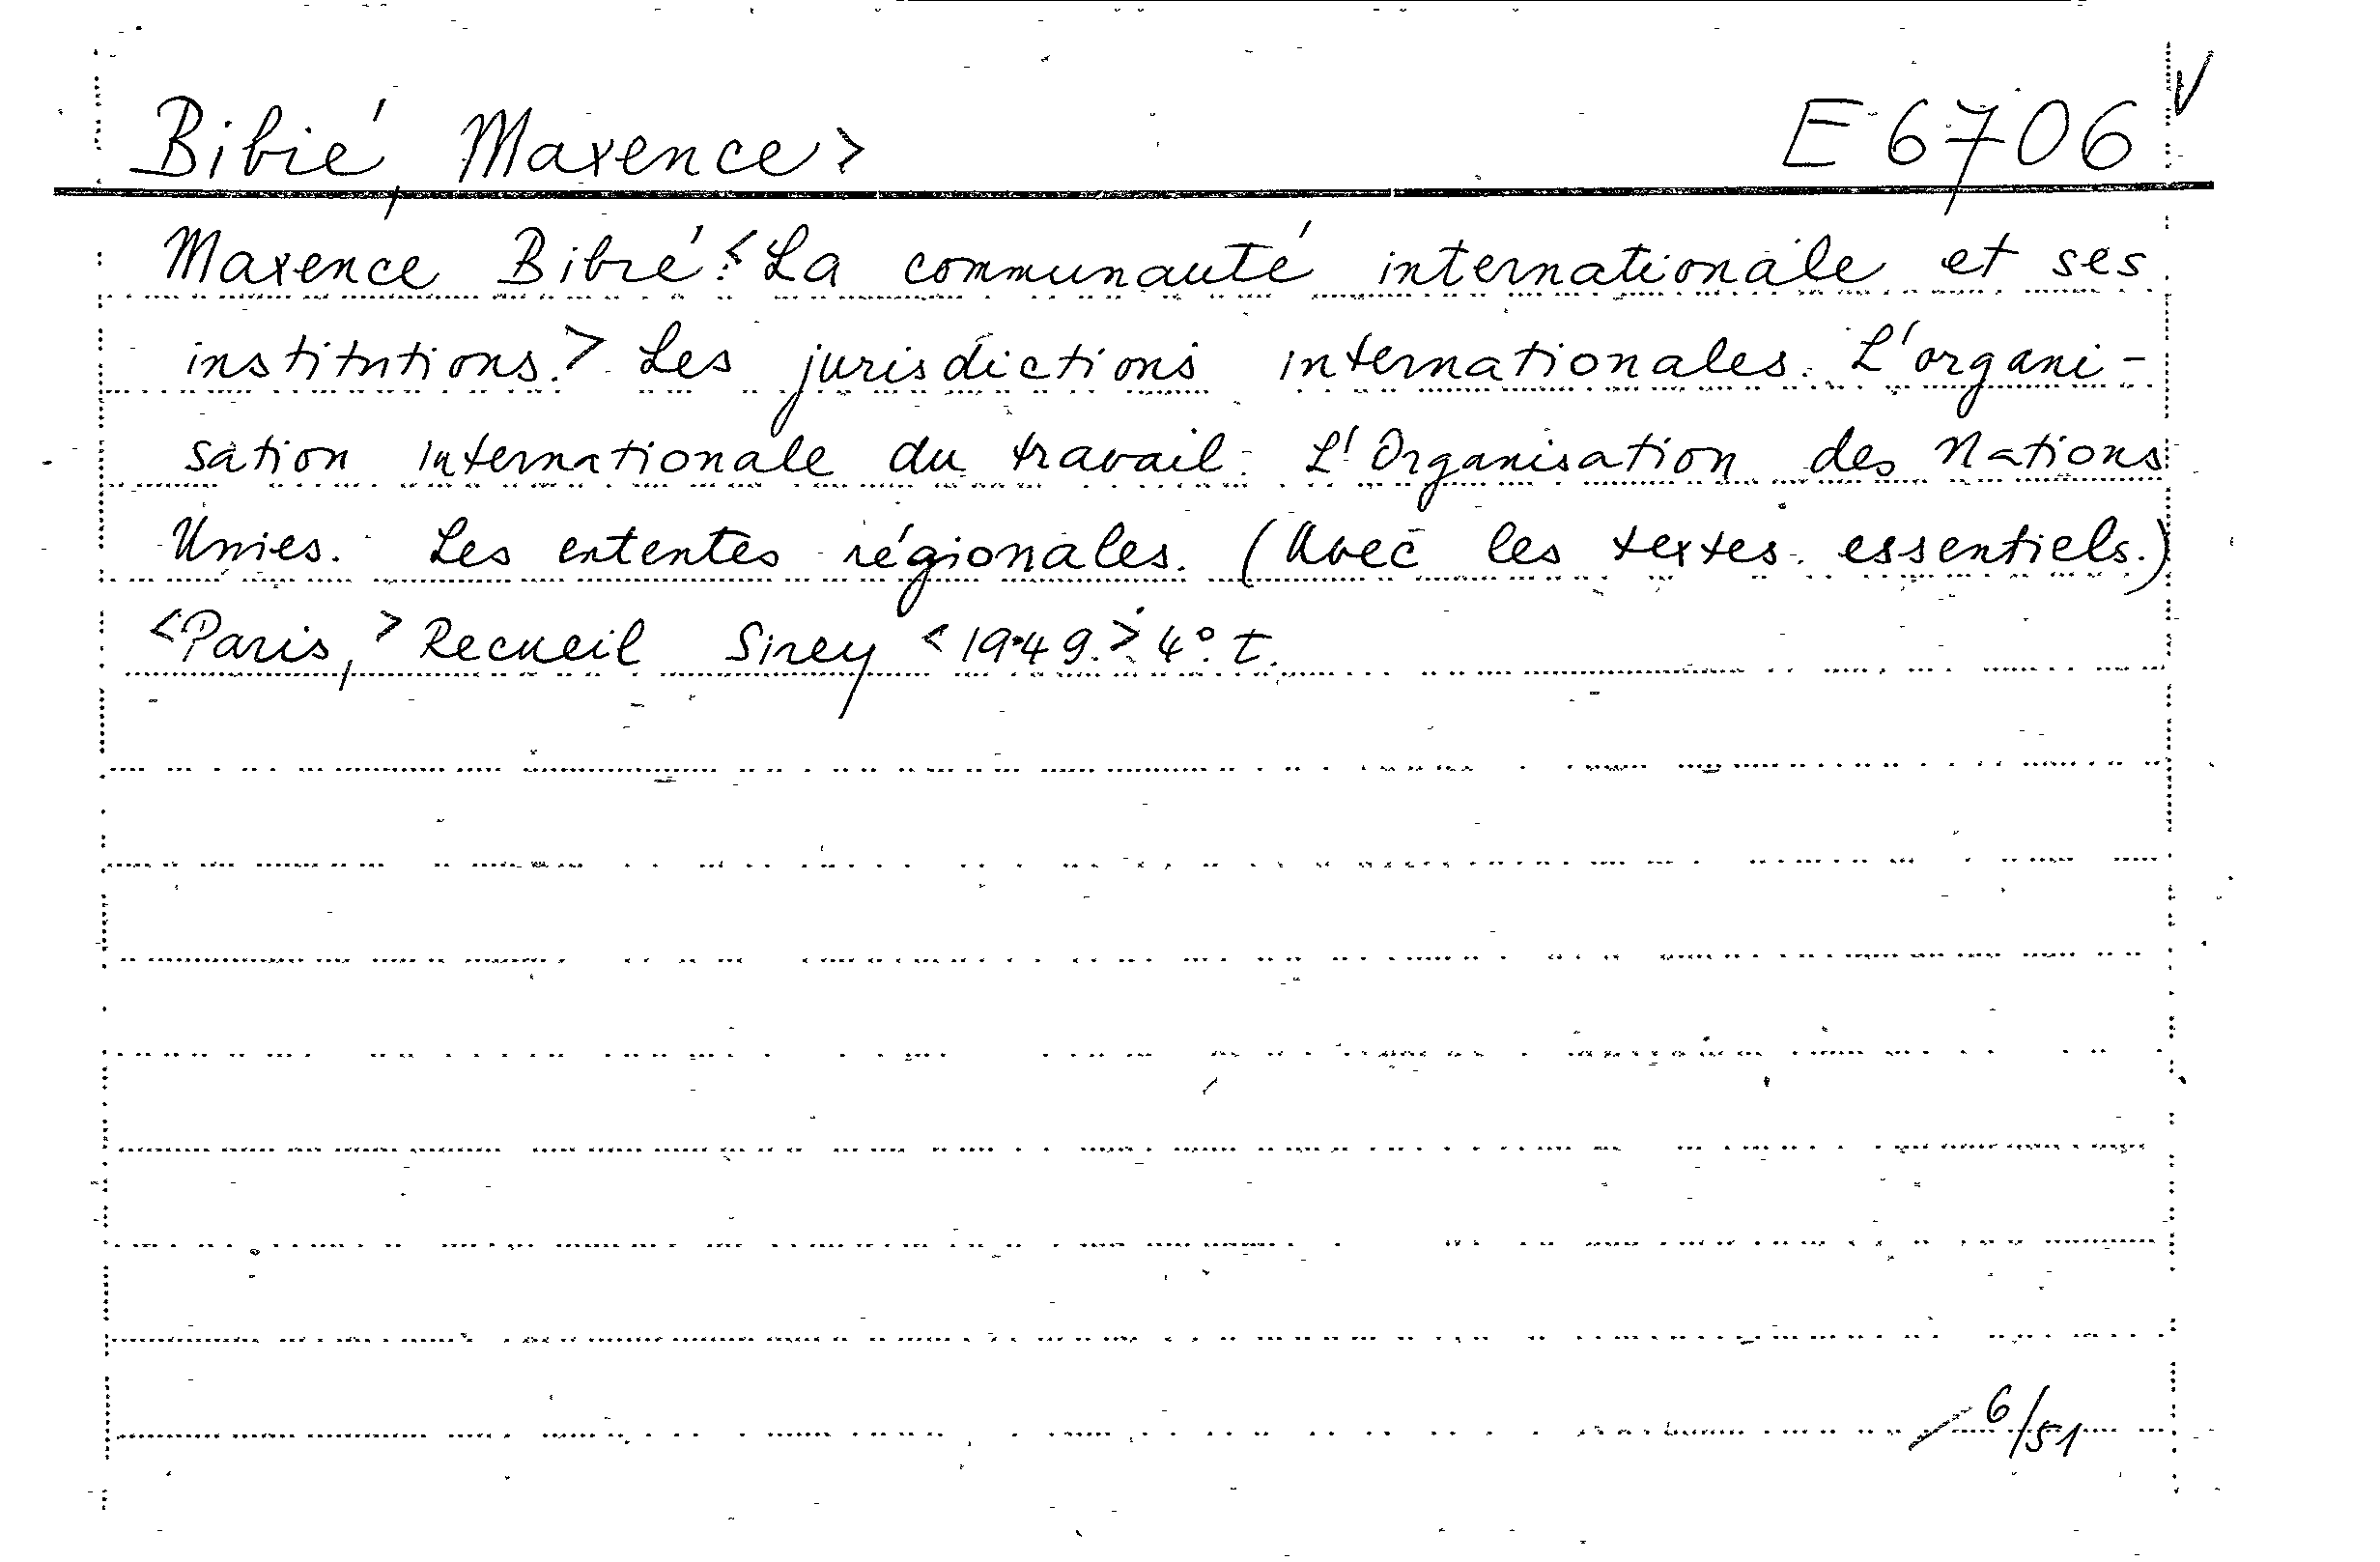 Bibié, Maxence> E 6706 V
Maxence Bibié:<La communauté internationale et ses
institutions.> Les jurisdictions internationales. L'organi-
sation internationale du travail. L'Organisation des Nations
Unies. Les ententes régionales. (Avec les textes essentiels.)
<Paris,> Recueil Sirey <1949.> 4°. t.
/ 6/51